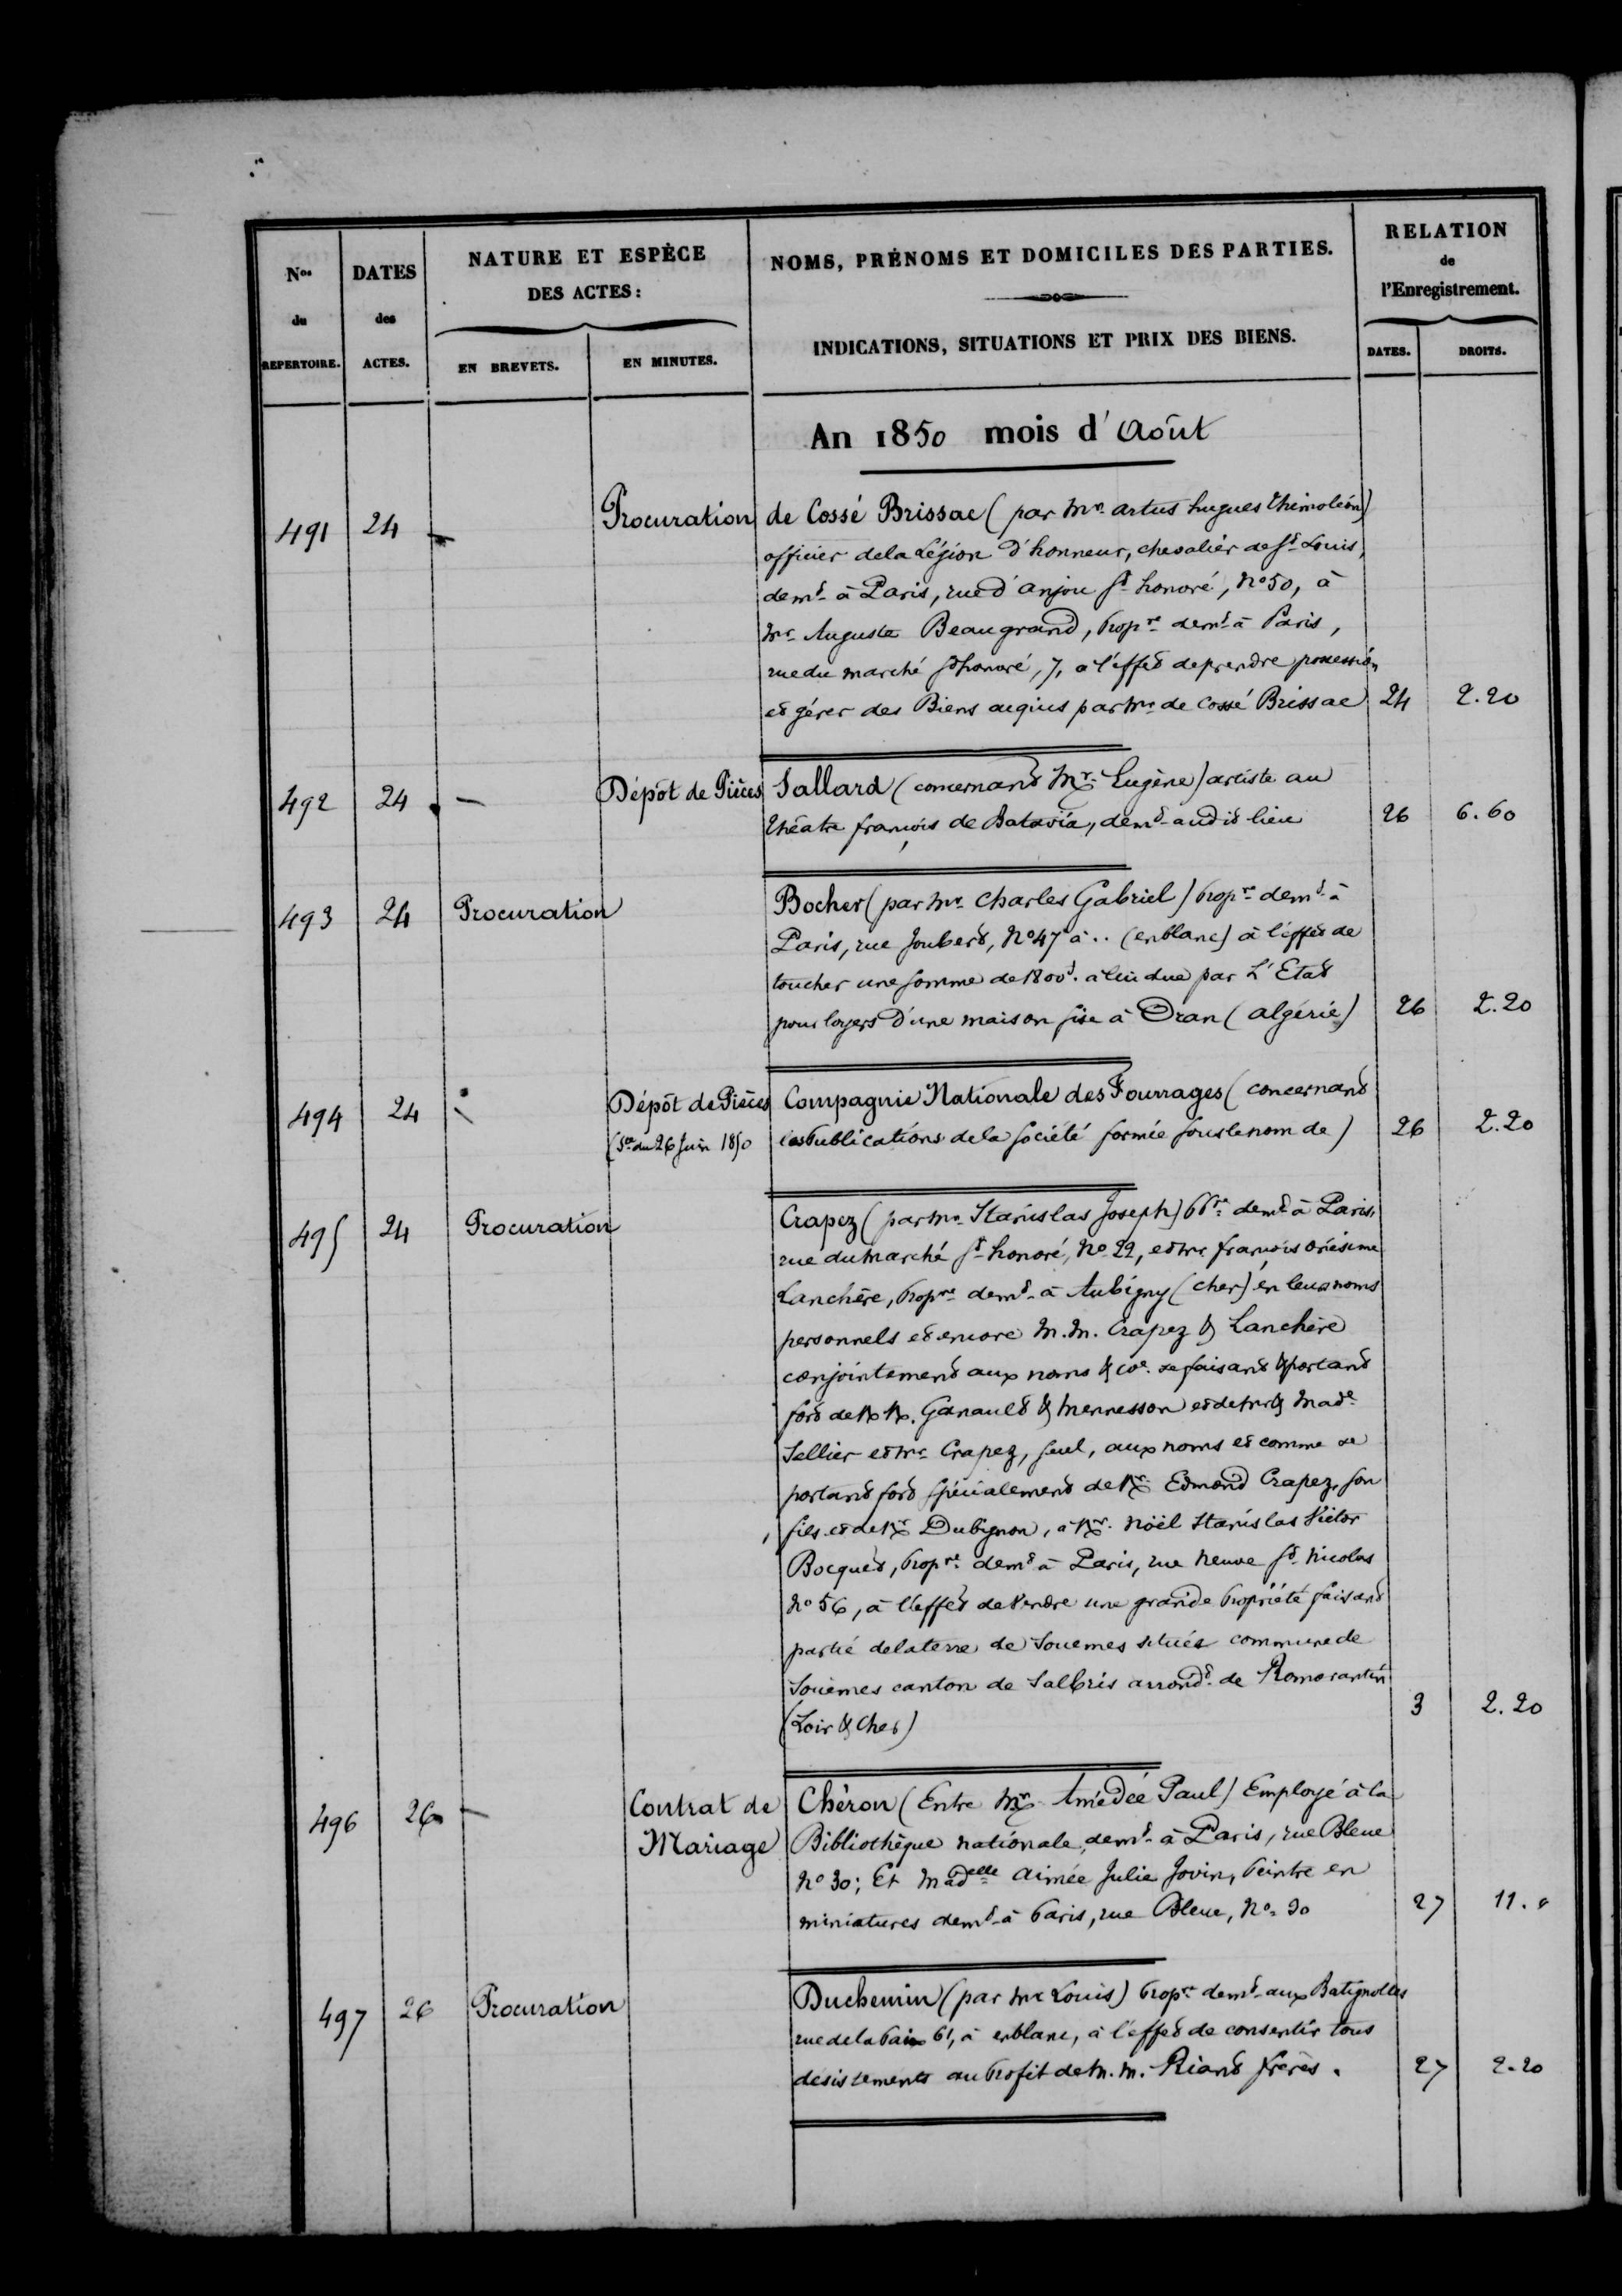 Nos du REPERTOIRE.
DATES des ACTES.
NATURE ET ESPÈCE
DES ACTES :
EN BREVETS.
EN MINUTES.
NOMS, PRÉNOMS ET DOMICILES DES PARTIES.
INDICATIONS, SITUATIONS ET PRIX DES BIENS.
RELATION
de
l'Enregistrement.
DATES.
DROITS.
An 1850 mois d'Août
491 24 — Procuration de Cossé Brissac (par Mr. artus hugues thimoléon)
officier de la Légion d'honneur, chevalier de St. Louis,
demt. à Paris, rue d'anjou St. honoré, No 50, à
Mr. Auguste Beaugrand, propre. demt. à Paris,
rue du marché St honoré, 7, à l'effet de prendre possession
et gérer des Biens acquis par Mr. de Cossé Brissac 24 2.20
492 24 — Dépôt de Pièces Sallard (concernant Mr. Eugène) artiste au
théatre français de Batavia, demt. audit lieu 26 6.60
493 24 Procuration Bocher (par Mr. Charles Gabriel) propre. demt. à
Paris, rue Joubert, No 47 à .. (en blanc) à l'effet de
toucher une somme de 1800f. à lui due par L'Etat
pour loyers d'une maison sise à Oran (algérie) 26 2.20
494 24 — Dépôt de Pièces Compagnie Nationale des Fourrages (concernant
(Sce. du 26 Juin 1850 les publications de la société formée sous le nom de) 26 2.20
495 24 Procuration Crapez (par Mr. Stanislas Joseph) ppre. demt. à Paris,
rue du marché St. honoré, No 22, et Mr. françois onésime
Lanchère, propre. demt. à Aubigny (Cher) en leurs noms
personnels et encore M.M. Crapez & Lanchère
conjointement aux noms & coe. se faisant & portant
fort de M.M. Ganault & Mennesson et de Mr. & Made.
Sellier et Mr. Crapez, seul, aux noms et comme se
portant fort spécialement de Mr. Edmond Crapez, son
fils et de Mr. Dubignon, à Mr. Noël Stanislas Victor
Bocquet, propre. demt. à Paris, rue neuve St. Nicolas
No 56, à l'effet de vendre une grande propriété faisant
partie de la terre de Souemes située commune de
Souemes canton de Salbris arrondt. de Romorantin
(Loir & Cher) 3 2.20
496 26 — Contrat de Mariage Chéron (Entre Mr. Amédée Paul) Employé à la
Bibliothèque nationale, demt. à Paris, rue Bleue
No 30; Et Madelle. aimée Julie Jovin, peintre en
miniatures demt. à Paris, rue Bleue, No. 30 27 11. "
497 26 Procuration Duchemin (par Mr. Louis) propre. demt. aux Batignolles
rue de la Paix 61, à en blanc, à l'effet de consentir tous
désistements au profit de M.M. Riant frères. 27 2.20